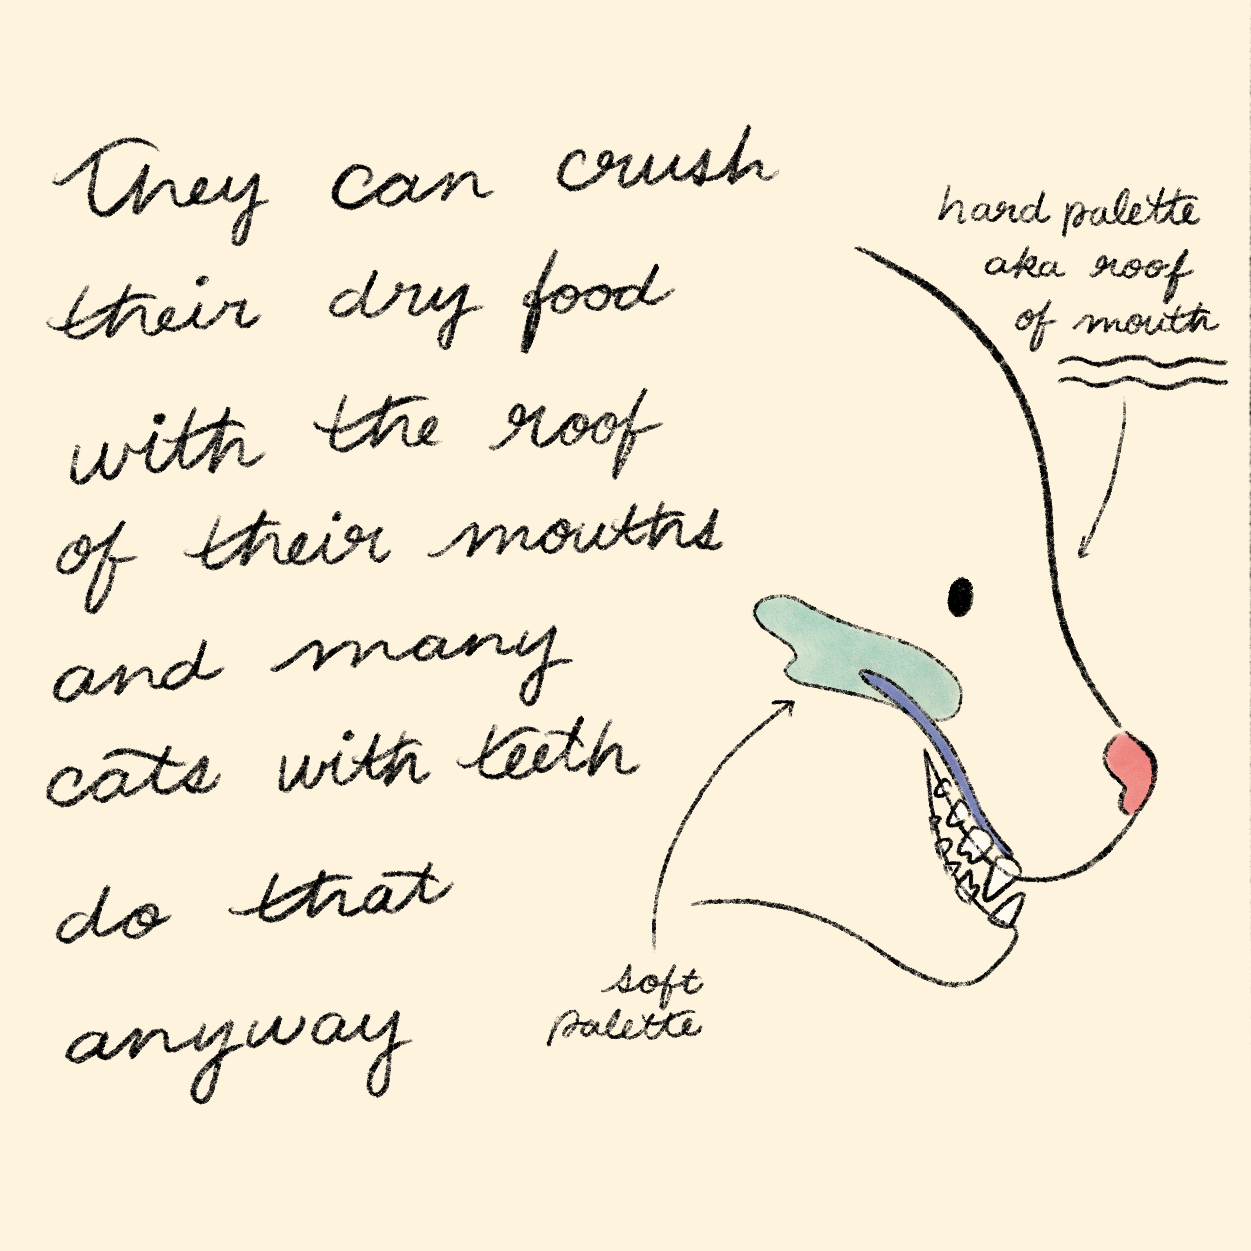 They can crush
their dry food
with the roof
of their mouths
and many
cats with teeth
do that
anyway
hard palette
aka roof
of mouth
soft
palette